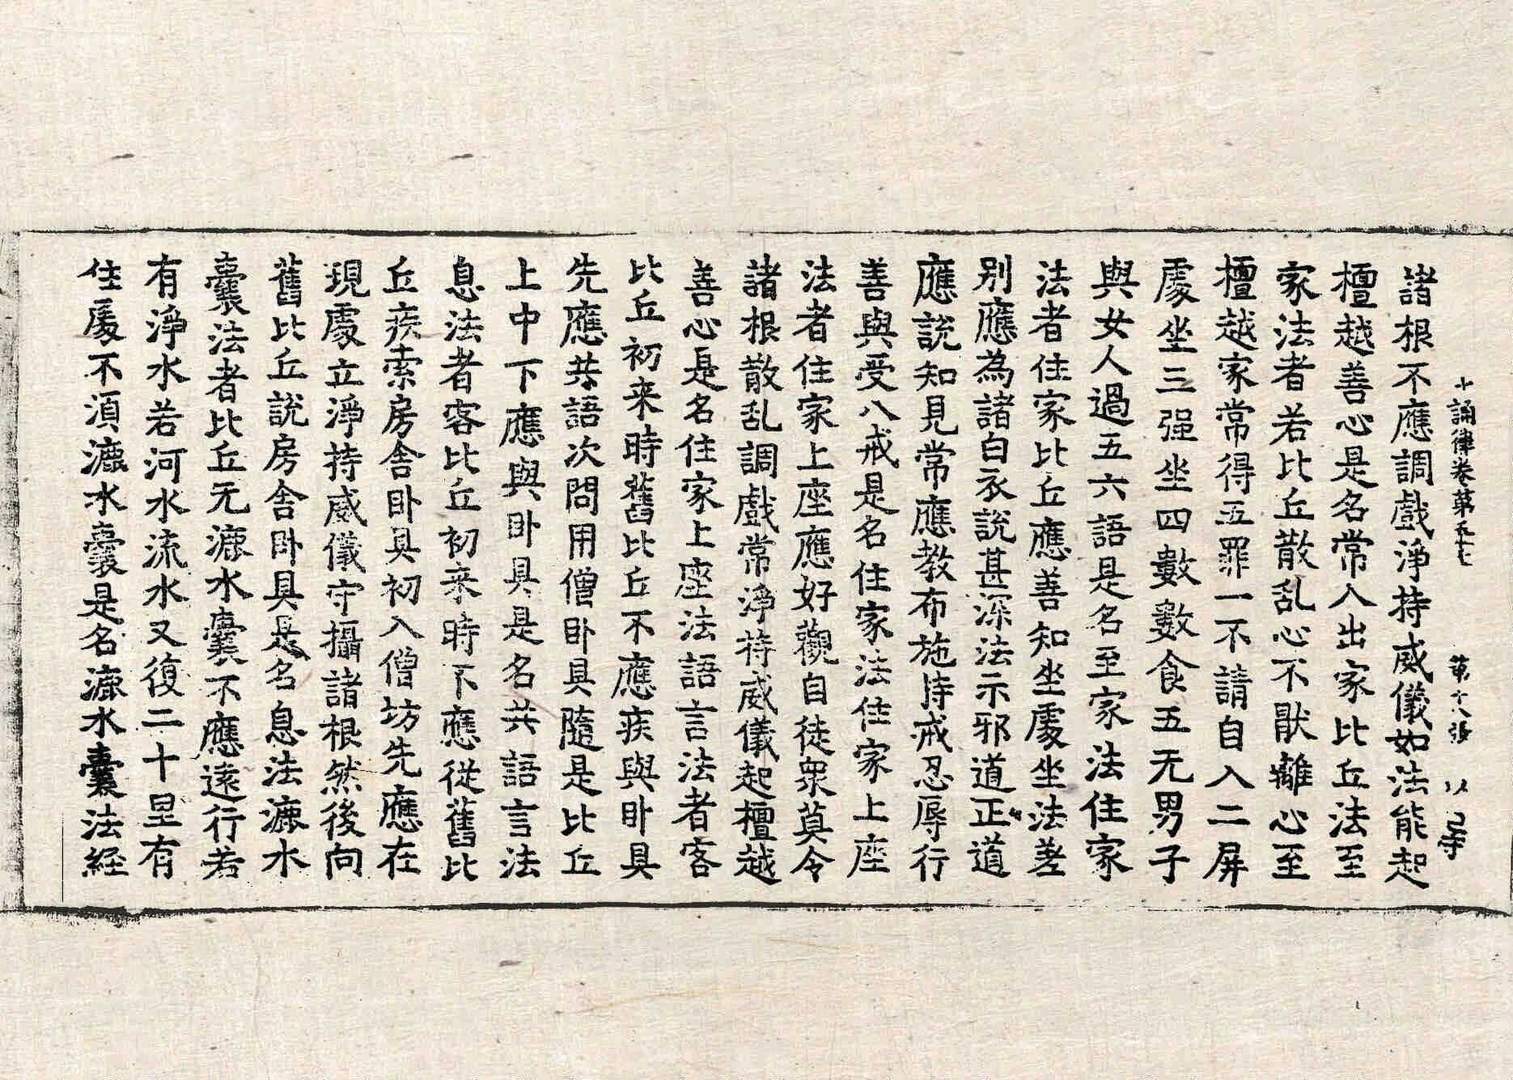 十誦律卷第五七 第十八張 以 
諸根不應調戲淨持威儀如法能起
檀越善心是名常入出家比丘法至
家法者若比丘散乱心不猒離心至
檀越家常得五罪一不請自入二屏
處坐三强坐四數數食五无男子
與女人過五六語是名至家法住家
法者住家比丘應善知坐處坐法差
别應為諸白衣說甚深法示邪道正道
應說知見常應教布施持戒忍辱行
善與受八戒是名住家法住家上座
法者住家上座應好觀自徒衆莫令
諸根散乱調戲常淨持威儀起檀越
善心是名住家上座法語言法者客
比丘初来時舊比丘不應疾與卧具
先應共語次問用僧卧具隨是比丘
上中下應與卧具是名共語言法
息法者客比丘初来時不應從舊比
丘疾索房舍卧具初入僧坊先應在
現處立淨持威儀守攝諸根然後向
舊比丘說房舍卧具是名息法漉水
囊法者比丘无漉水囊不應遠行若
有淨水若河水流水又復二十里有
住處不湏漉水囊是名漉水囊法經